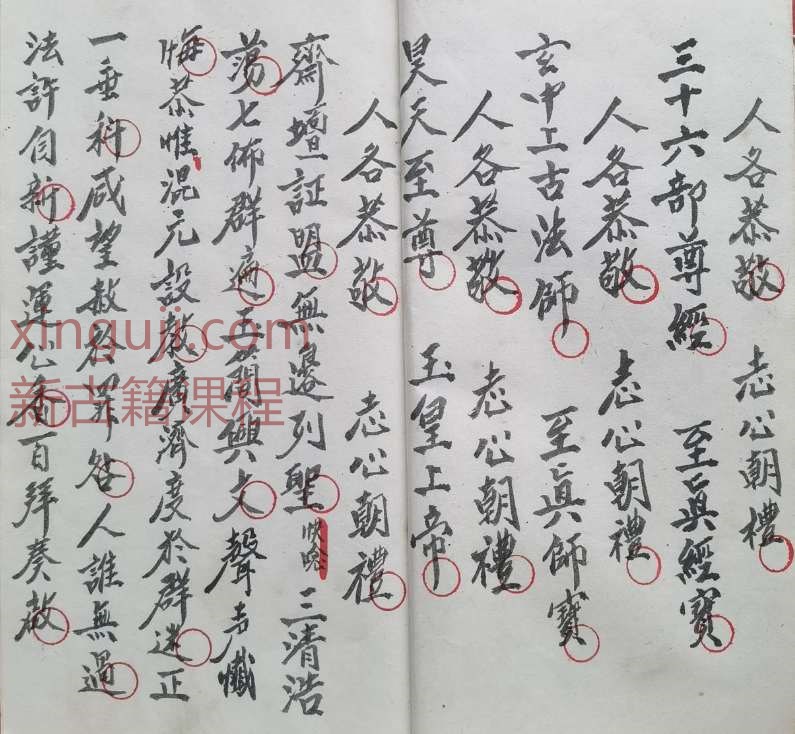 人各恭敬 志心朝禮
三十六部尊經 至眞經寶
人各恭敬 志心朝禮
玄中上古法師 至眞師寶
人各恭敬 志心朝禮
昊天至尊 玉皇上帝
人各恭敬 志心朝禮
齋壇証盟無邊列聖 三清浩
蕩七佈群 玉開興文聲 懺
悔恭惟混元設教廣濟度於群迷正
一垂科咸望赦於罪咎人誰無過
法許自新謹運心香百拜奏啟
xinguji.com
新古籍课程